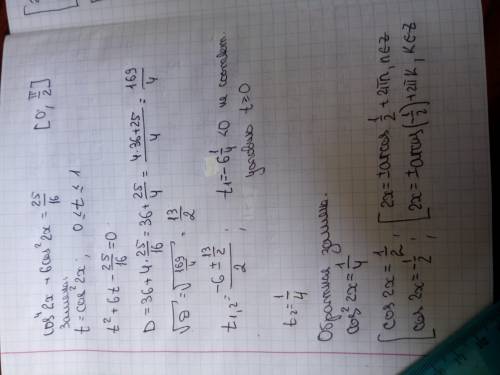 cos⁴2x + 6cos²2x = 25/16 [0, π/2]
Замена:
t = cos²2x; 0 ≤ t ≤ 1
t² + 6t - 25/16 = 0
D = 36 + 4·25/16 = 36 + 25/4 = (4·36+25)/4 = 169/4
√D = √(169/4) = 13/2
t₁,₂ = (-6 ± 13/2)/2; t₁ = -6 1/4 < 0 не соответ.
условию t ≥ 0
t₂ = 1/4
Обратная замена.
cos²2x = 1/4
[cos 2x = 1/2; [2x = ±arccos 1/2 + 2πn, n∈Z
[cos 2x = -1/2; [2x = ±arccos(-1/2) + 2πk, k∈Z